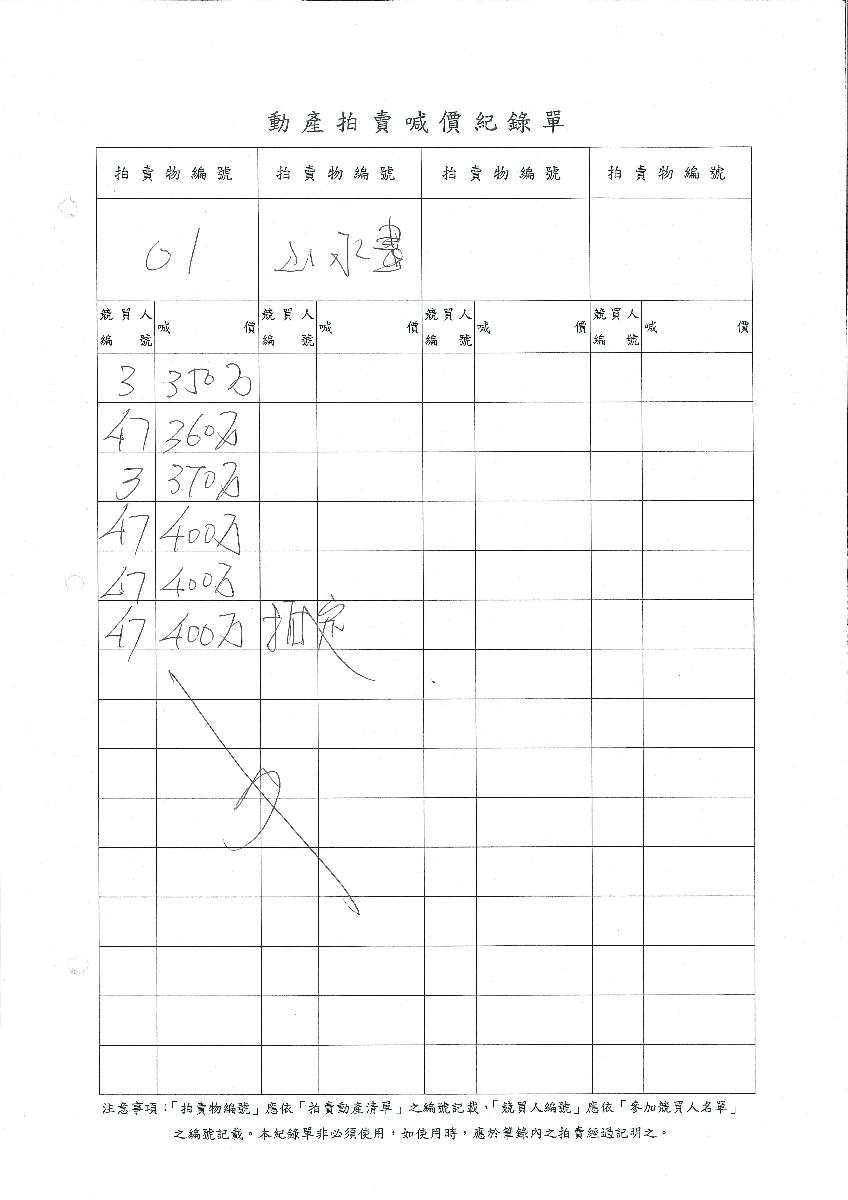 動產拍賣喊價紀錄單
拍賣物編號 拍賣物編號 拍賣物編號 拍賣物編號
01 山水畫
競買人編號 喊價 競買人編號 喊價 競買人編號 喊價 競買人編號 喊價
3 350万
47 360万
3 370万
47 400万
47 400万
47 400万 拍定
注意事項：「拍賣物編號」應依「拍賣動產清單」之編號記載，「競買人編號」應依「參加競買人名單」
之編號記載。本紀錄單非必須使用，如使用時，應於筆錄內之拍賣經過記明之。